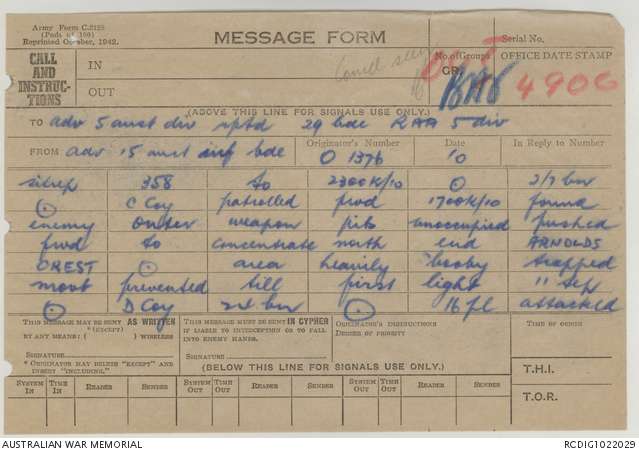 Army Form C.2128
(Pads of 100)
Reprinted October, 1942.
MESSAGE FORM
Serial No.
CALL AND INSTRUCTIONS
IN
OUT
No. of Groups
GR.
OFFICE DATE STAMP
4906
(ABOVE THIS LINE FOR SIGNALS USE ONLY.)
TO adv 5 aust div rptd 29 bde RAA 5 div
FROM adv 15 aust inf bde
Originator's Number
O 1376
Date
10
In Reply to Number
sitrep 358 to 2300K/10 ⊙ 2/7 bn
⊙ C Coy patrolled fwd 1700K/10 found
enemy outer weapon pits unoccupied pushed
fwd to concentrate north end ARNOLDS
CREST ⊙ area heavily booby trapped
movt prevented till first light 11 sep
⊙ D Coy 24 bn ⊙ 16 pl attacked
THIS MESSAGE MAY BE SENT AS WRITTEN
(EXCEPT)
BY ANY MEANS: ( ) WIRELESS
SIGNATURE
* ORIGINATOR MAY DELETE "EXCEPT" AND
INSERT "INCLUDING."
THIS MESSAGE MUST BE SENT IN CYPHER
IF LIABLE TO INTERCEPTION OR TO FALL
INTO ENEMY HANDS.
SIGNATURE
ORIGINATOR'S INSTRUCTIONS
DEGREE OF PRIORITY
TIME OF ORIGIN
(BELOW THIS LINE FOR SIGNALS USE ONLY.)
T.H.I.
T.O.R.
SYSTEM IN
TIME IN
READER
SENDER
SYSTEM OUT
TIME OUT
READER
SENDER
SYSTEM OUT
TIME OUT
READER
SENDER
AUSTRALIAN WAR MEMORIAL
RCDIG1022029